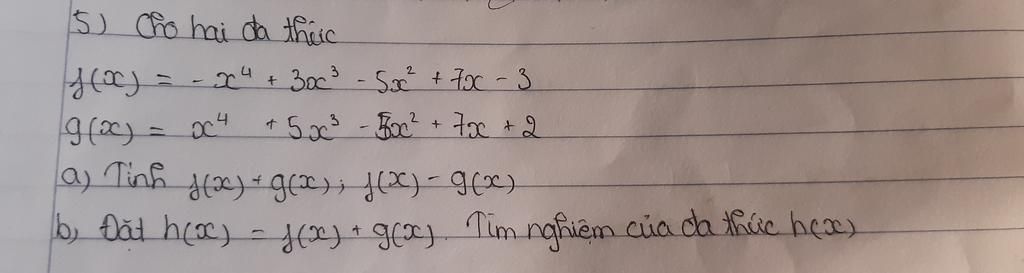 5) Cho hai đa thức
f(x) = -x⁴ + 3x³ - 5x² + 7x - 3
g(x) = x⁴ + 5x³ - 5x² + 7x + 2
a) Tính f(x) + g(x); f(x) - g(x)
b, Đặt h(x) = f(x) + g(x). Tìm nghiệm của đa thức h(x)